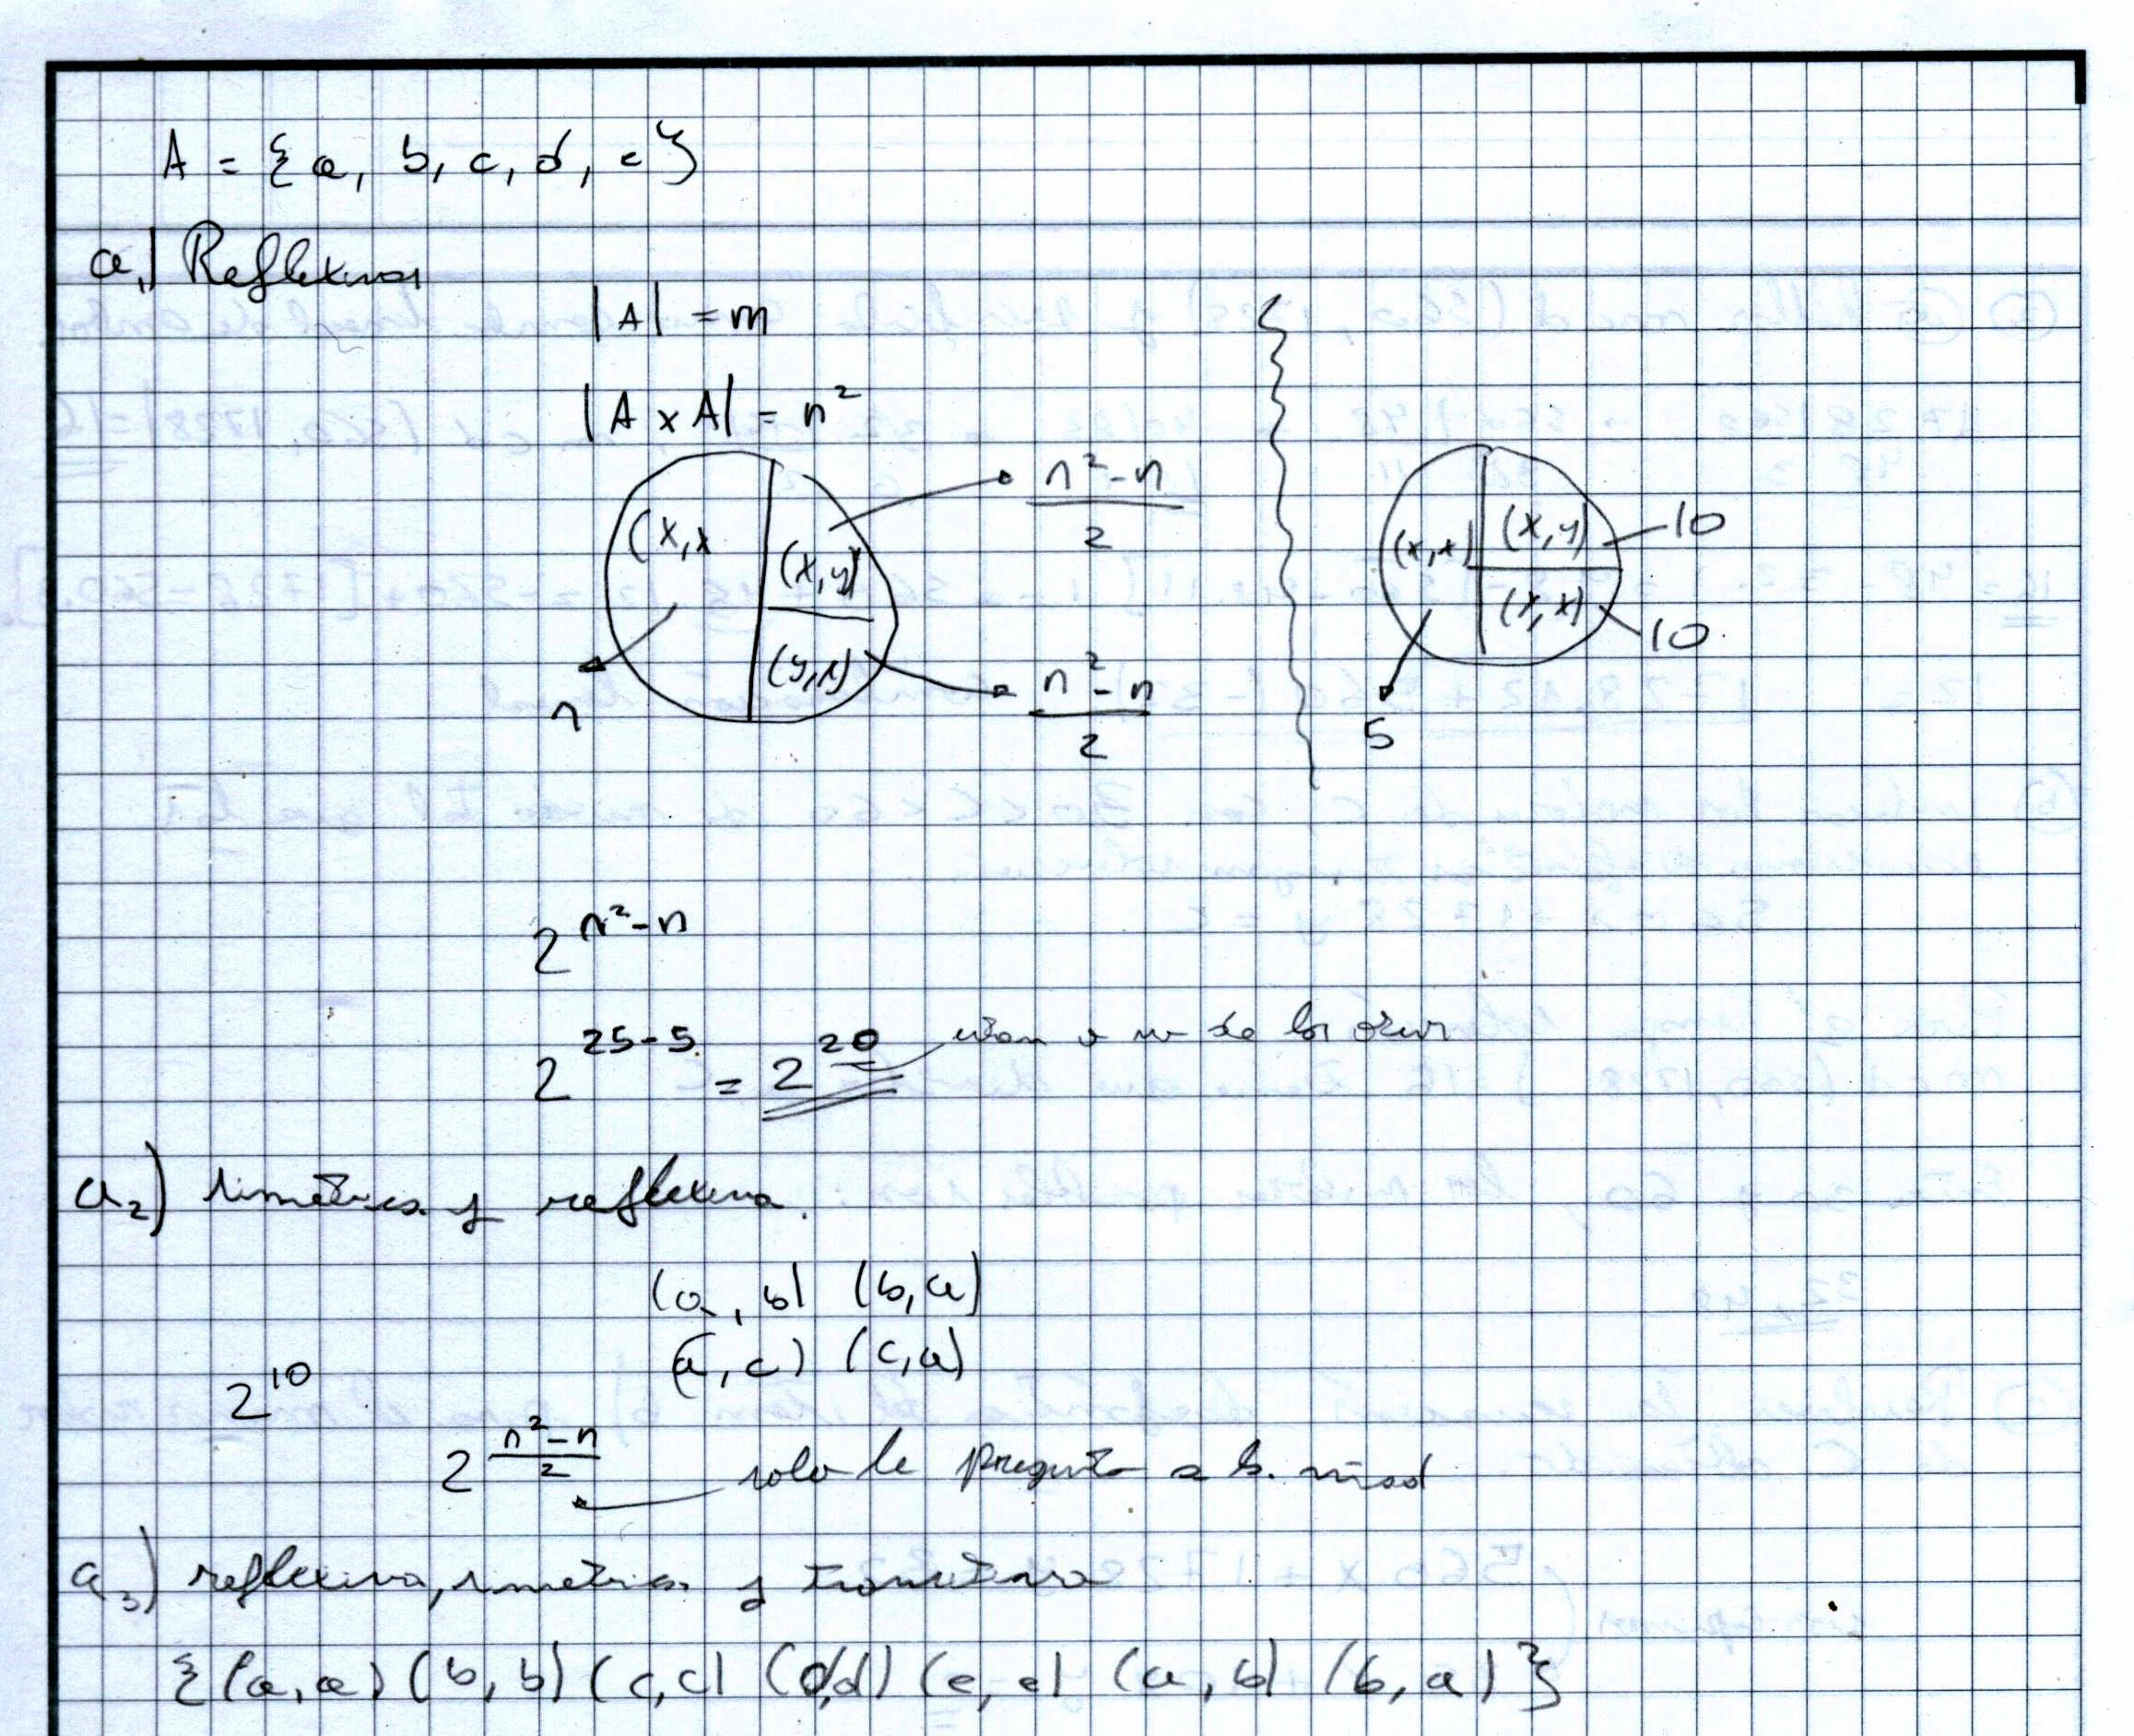 A = {a, b, c, d, e}
a1) Reflexivas
|A| = n
|A x A| = n²
(x,x
(x,y)
(y,x)
n
n²-n
2
n²-n
2
(x,x)
(x,y)
(x,x)
10
10
5
2^n²-n
2^25-5 = 2^20 de los
a2) simétrica y reflexiva.
(a, b) (b,a)
(a, c) (c,a)
2^10
2^n²-n/2 solo le pregunto a la mitad
a3) reflexiva, simétrica y transitiva
{(a,a) (b,b) (c,c) (d,d) (e,e) (a,b) (b,a)}